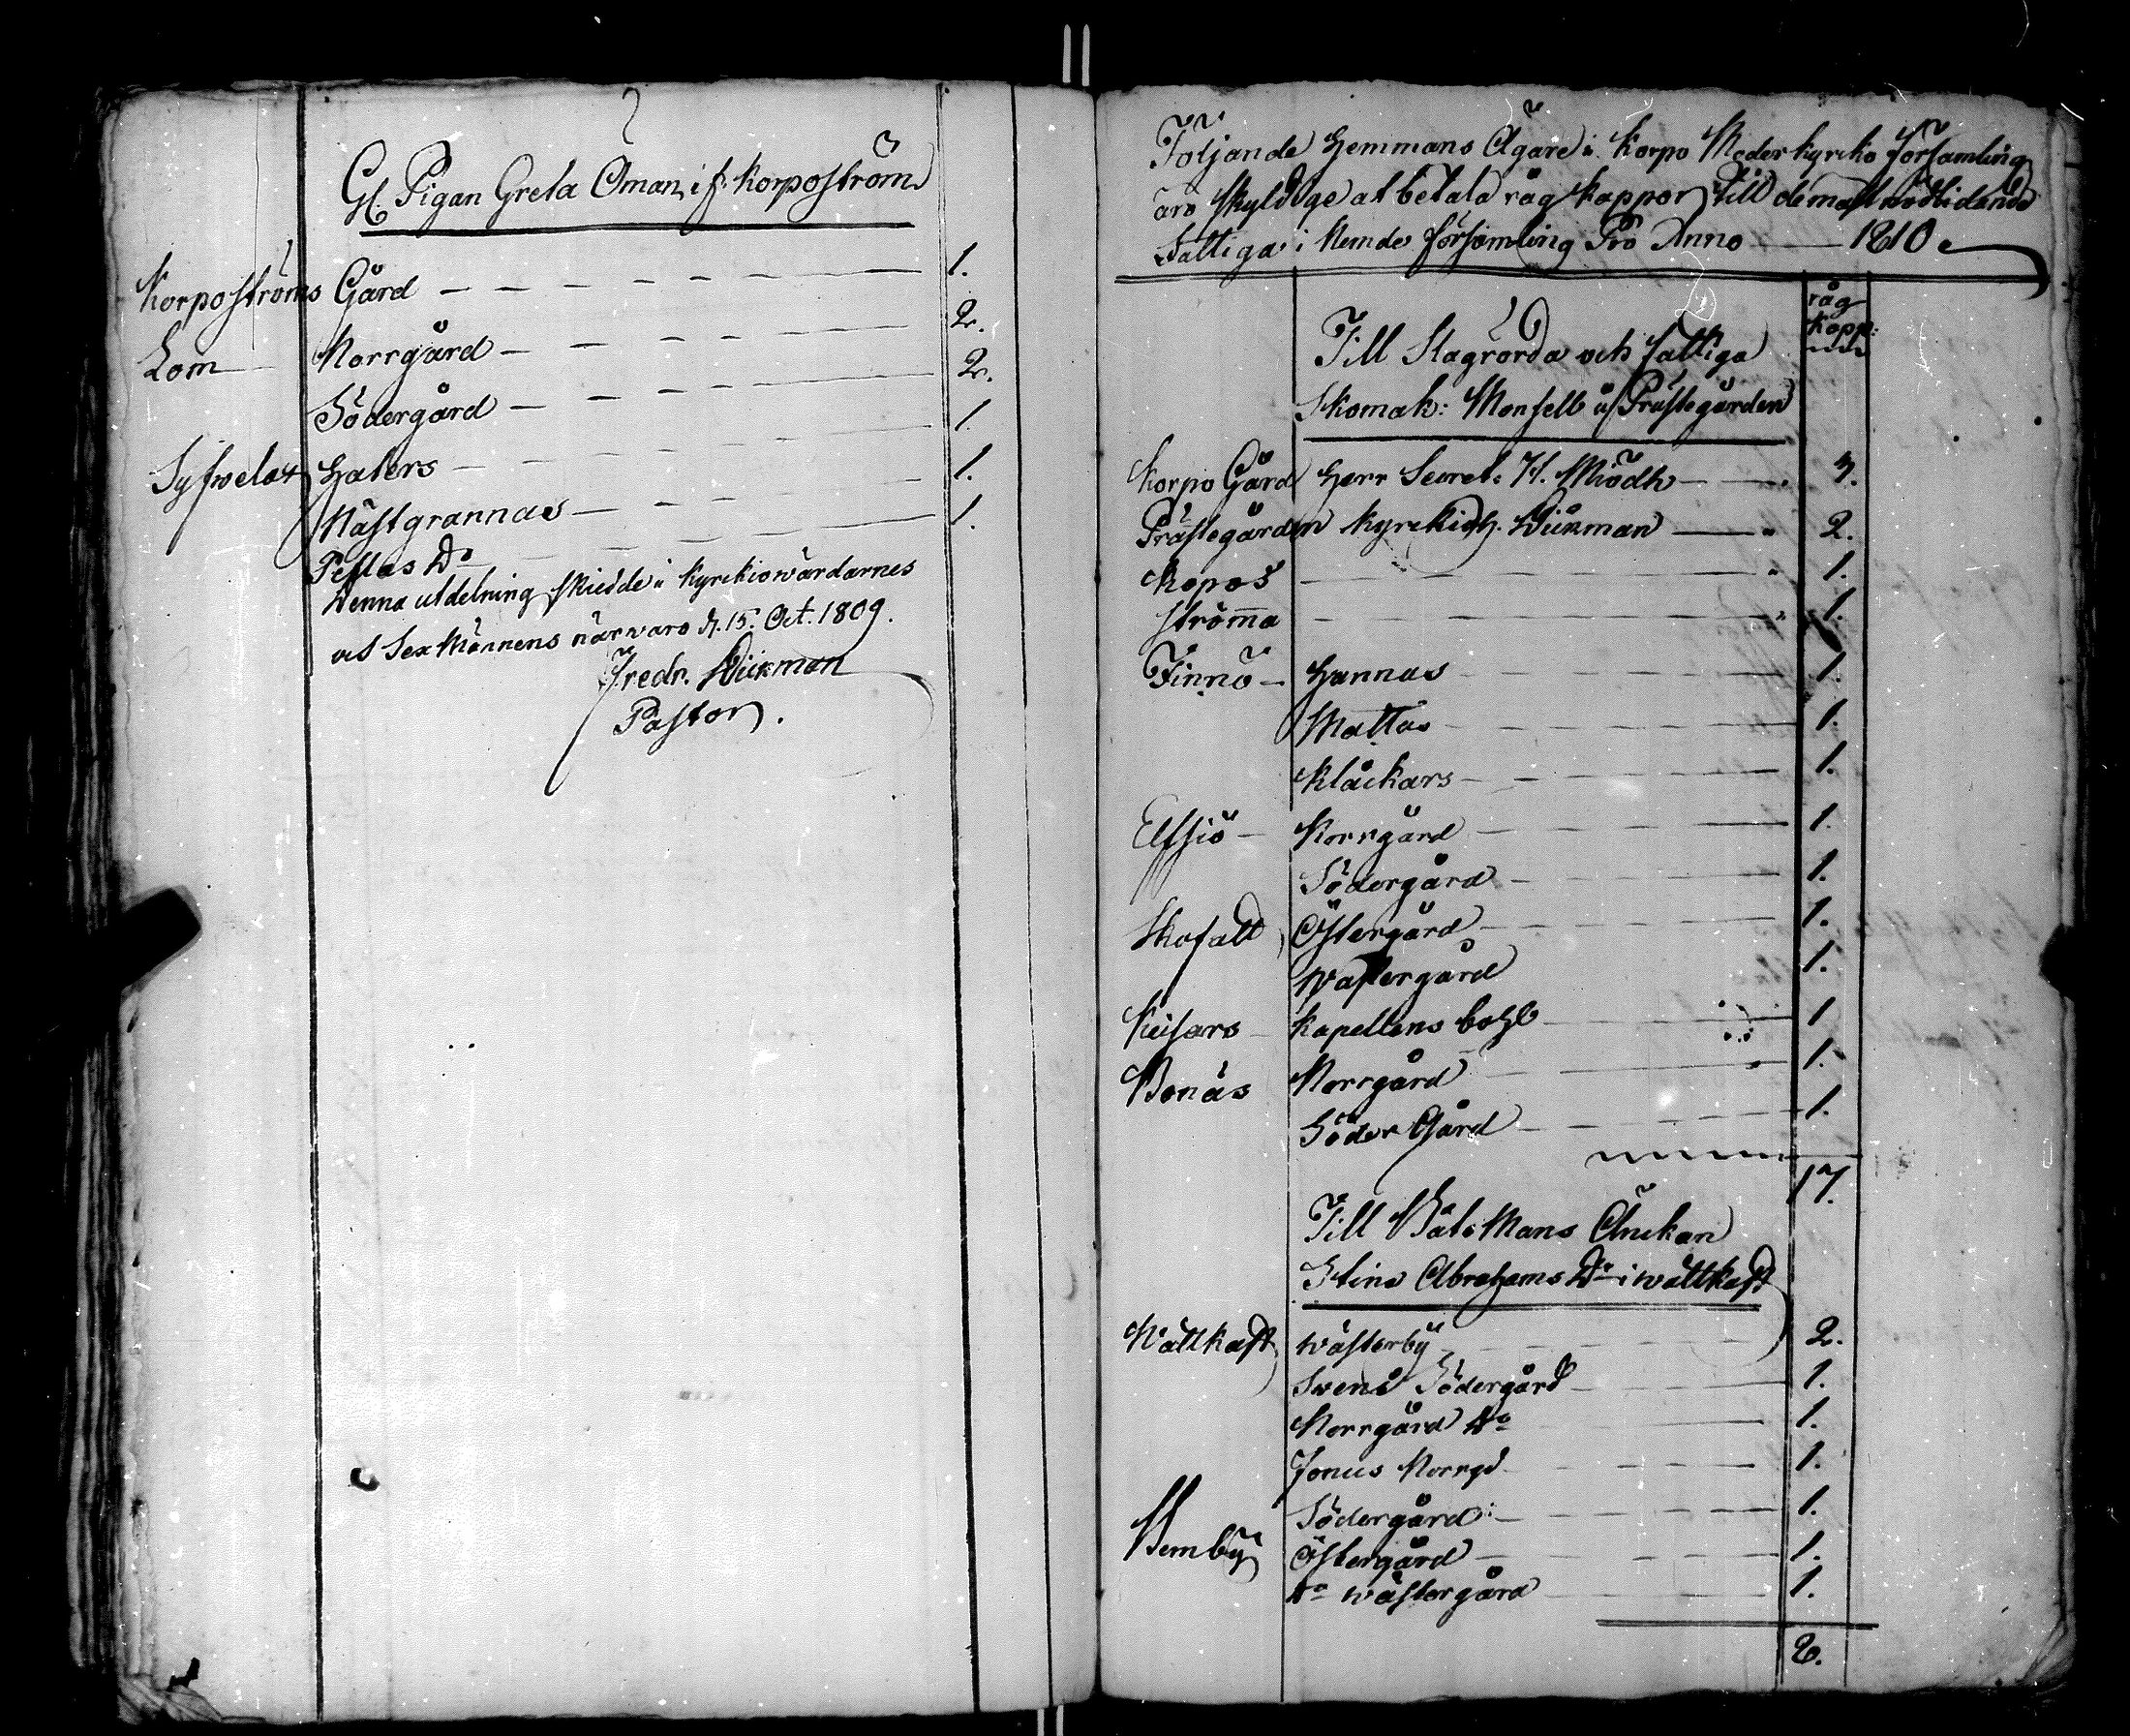 Gl. Pigan Greta Öman i f. Korpoström
Korpoströms Gård — 1.
Lom Norrgård — 2.
Södergård — 2.
Gyfwelax Haters — 1.
Nästgrannas — 1.
Peflas Do — 1.
Denna utdelning skiedde i Kyrckiowärdarnes
och Sex Männens närvaro d. 15. Oct. 1809.
Fredr. Wickman
Pastor.
Följande Hemmans Ägare i Korpo Moderkyrcko församling
äro skyldige at betala råg kappor till de mäst nödlidande
Fattiga i Nemde församling Pro Anno — 1810.
råg
kapp:
Till Slagrörda och fattiga
Skomak: Monsell å Prästegården
Korpo Gård Herr Secret: H. Miödh — 3.
Prästegården Kyrckioh. Wickman — 2.
Kopos — 1.
Strömma — 1.
Finnö — Hannas — 1.
Mattas — 1.
Klåckars — 1.
Elfsiö — Norrgård — 1.
Södergård — 1.
Skofall Östergård — 1.
Wästergård 1.
Keisars Kapellens bohl — 1
Bonäs Norrgård — 1.
Söder Gård — 1.
17.
Till Båts Mans Änckan
Stina Abrahams Dr i wattkast
Wattkast wästerby 2.
Svens Södergård — 1.
Norrgård Do — 1.
Jonus Norrgd — 1.
Södergård: — 1.
Remby Östergård — 1.
Do wästergård — 1.
8.